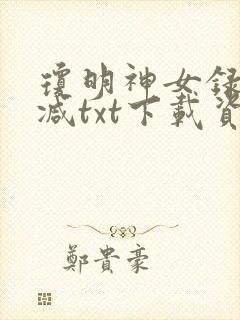 瓊明神女録
减txt下載資
鄭貴豪